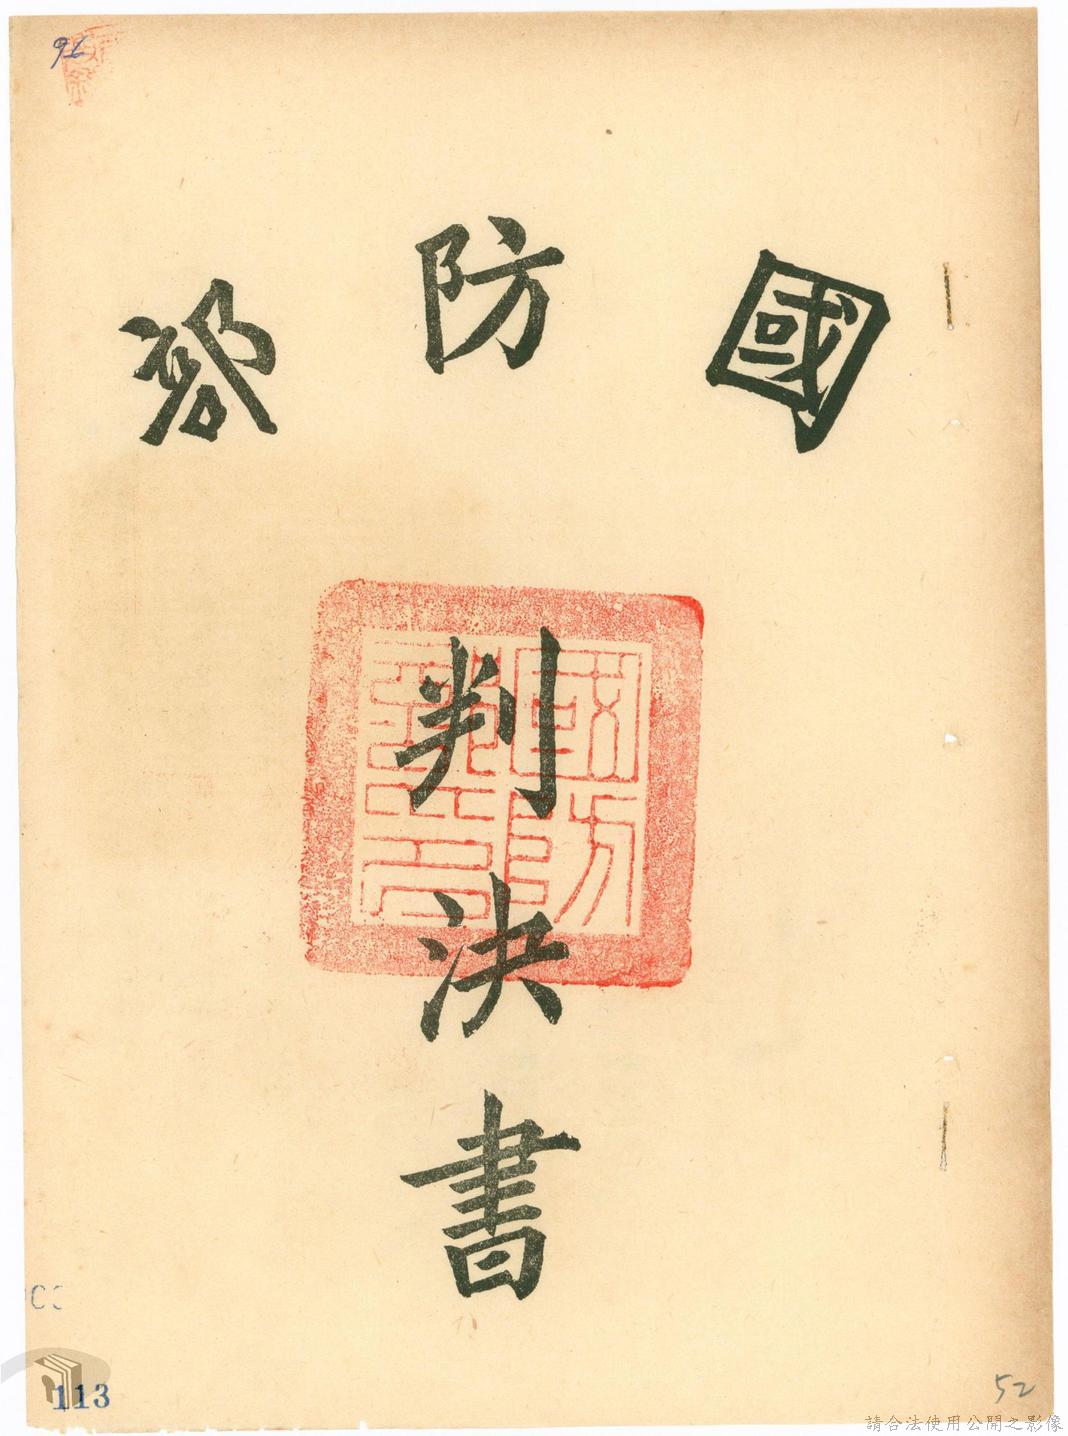 96
國防部
判決書
113
52
請合法使用公開之影像